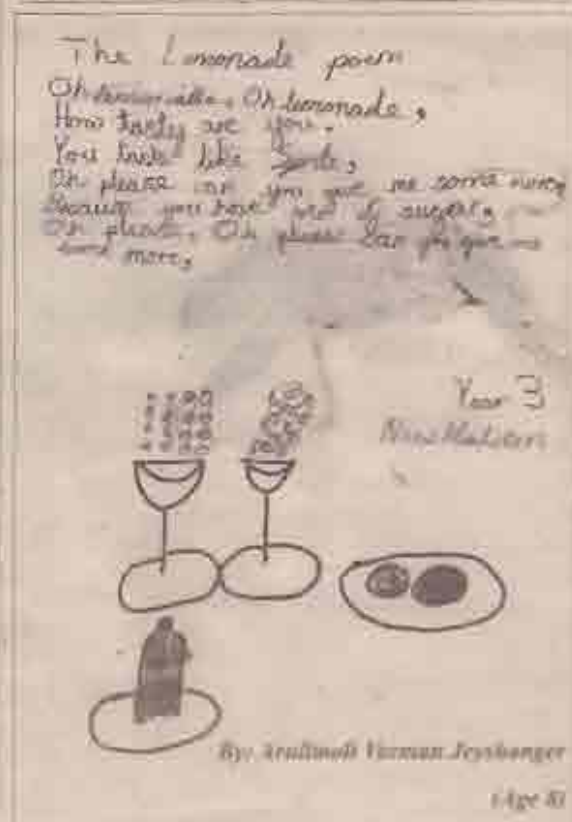 The Lemonade poem
Oh lemonade, Oh lemonade,
How tasty are you,
You taste like
Oh please can you give me some more,
Because you have of sugar,
Oh please, Oh please can you give me
some more,
Year 3
By: Varman Jeyshanger
(Age 8)